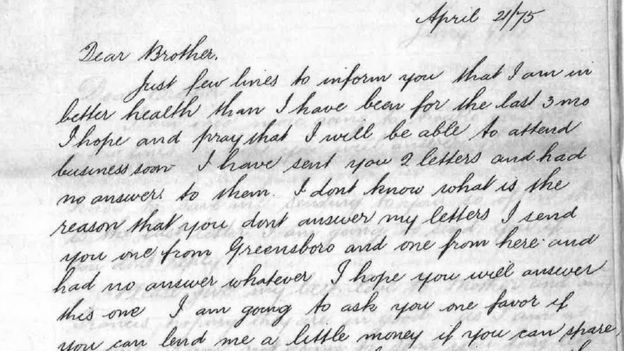 April 21/75
Dear Brother.
Just few lines to inform you that I am in
better health than I have been for the last 3 mo
I hope and pray that I will be able to attend
business soon I have sent you 2 letters and had
no answer to them. I dont know what is the
reason that you dont answer my letters I send
you one from Greensboro and one from here and
had no answer whatever I hope you will answer
this one I am going to ask you one favor if
you can lend me a little money if you can spare